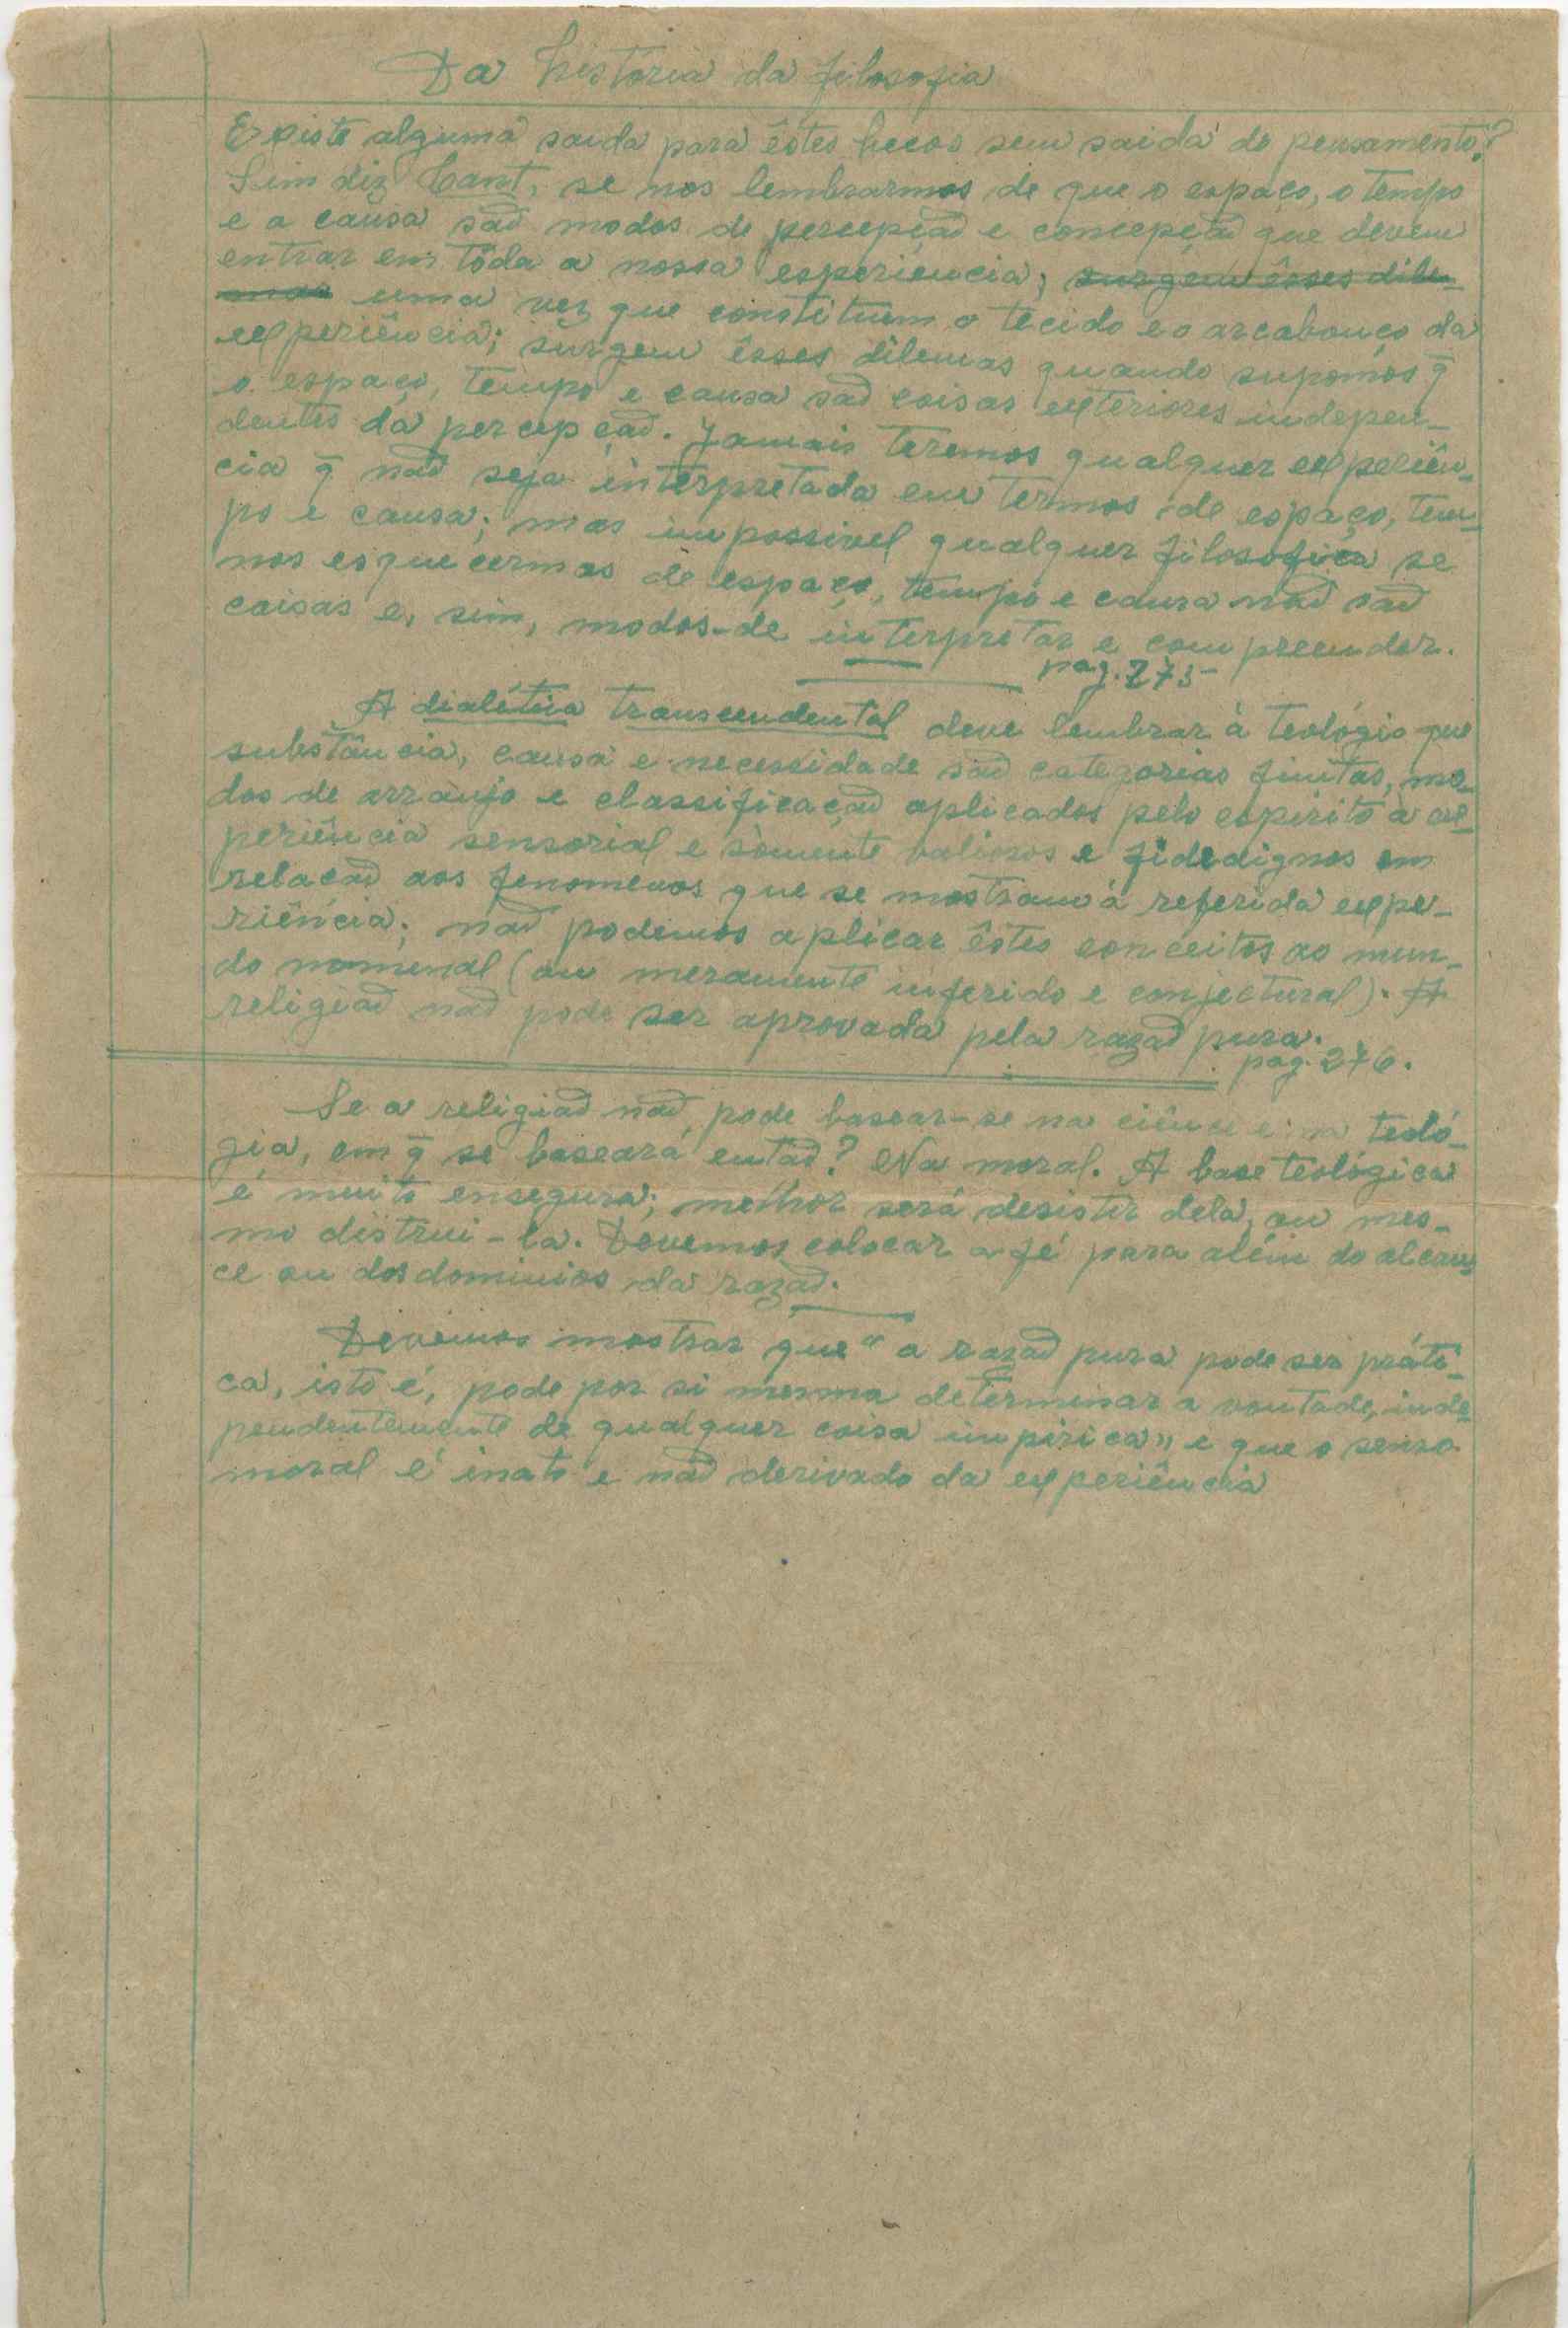 Da história da filosofia
Existe alguma saída para êstes becos sem saída do pensamento?
Sim diz Cant, se nos lembrarmos de que o espaço, o tempo
e a causa são modos de percepção e concepção que devem
entrar em tôda a nossa esperiencia; surgem êsses dile-
uma vez que constituem o tecido e o arcabouço da
experiência; surgem êsses dilemas quando supomos q̄
o espaço, tempo e causa são coisas exteriores indepen-
dentes da percepção. Jamais teremos qualquer experiên-
cia q̄ não seja interpretada em termos de espaço, tem-
po e causa; mas impossivel qualquer filosofica se
nos esquecermos de espaço, tempo e causa não são
coisas e, sim, modos-de interpretar e compreender.
pag. 275-
A dialética transcendental deve lembrar à teológio que
substância, causa e necessidade são categorias finitas, mo-
dos de arranjo e classificação aplicados pelo espirito à ex-
periência sensorial e sòmente valiosos e fidedignos em
relação aos fenomenos que se mostram à referida expe-
riência; não podemos aplicar êstes conceitos ao mun-
do nomenal (ou meramente inferido e conjectural). A
religião não pode ser aprovada pela razão pura.
pag. 276.
Se a religião não pode basear-se na ciênce e na teoló-
gia, em q̄ se baseará então? Na moral. A base teológica
é muito ensegura; melhor será desistir dela, ou mes-
mo distrui-la. Devemos colocar a fé para além do alcan-
ce ou dos dominios da razão.
Devemos mostrar que "a razão pura pode ser práti-
ca, isto é, pode por si mesma determinar a vontade, inde-
pendentemente de qualquer coisa impirica" e que o senso
moral é inato e não derivado da experiência